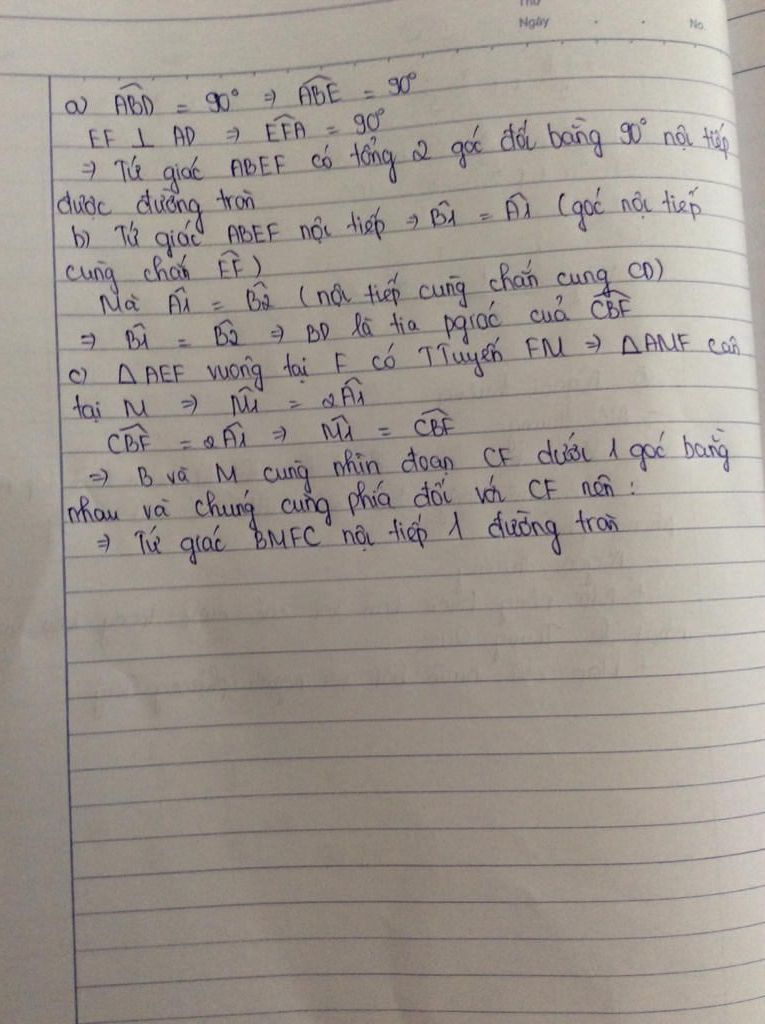 Thứ
Ngày . . No.
a) ABD̂ = 90° ⇒ ABÊ = 90°
EF ⊥ AD ⇒ EFÂ = 90°
⇒ Tứ giác ABEF có tổng 2 góc đối bằng 90° nội tiếp
được đường tròn
b) Tứ giác ABEF nội tiếp ⇒ B̂1 = Â1 (góc nội tiếp
cùng chắn EF)
Mà Â1 = B̂2 (nội tiếp cùng chắn cung CD)
⇒ B̂1 = B̂2 ⇒ BD là tia pgiác của CBF̂
c) △AEF vuông tại F có TTuyến FM ⇒ △AMF cân
tại M ⇒ M̂1 = 2Â1
CBF̂ = 2Â1 ⇒ M̂1 = CBF̂
⇒ B và M cùng nhìn đoạn CF dưới 1 góc bằng
nhau và chúng cùng phía đối với CF nên :
⇒ Tứ giác BMFC nội tiếp 1 đường tròn